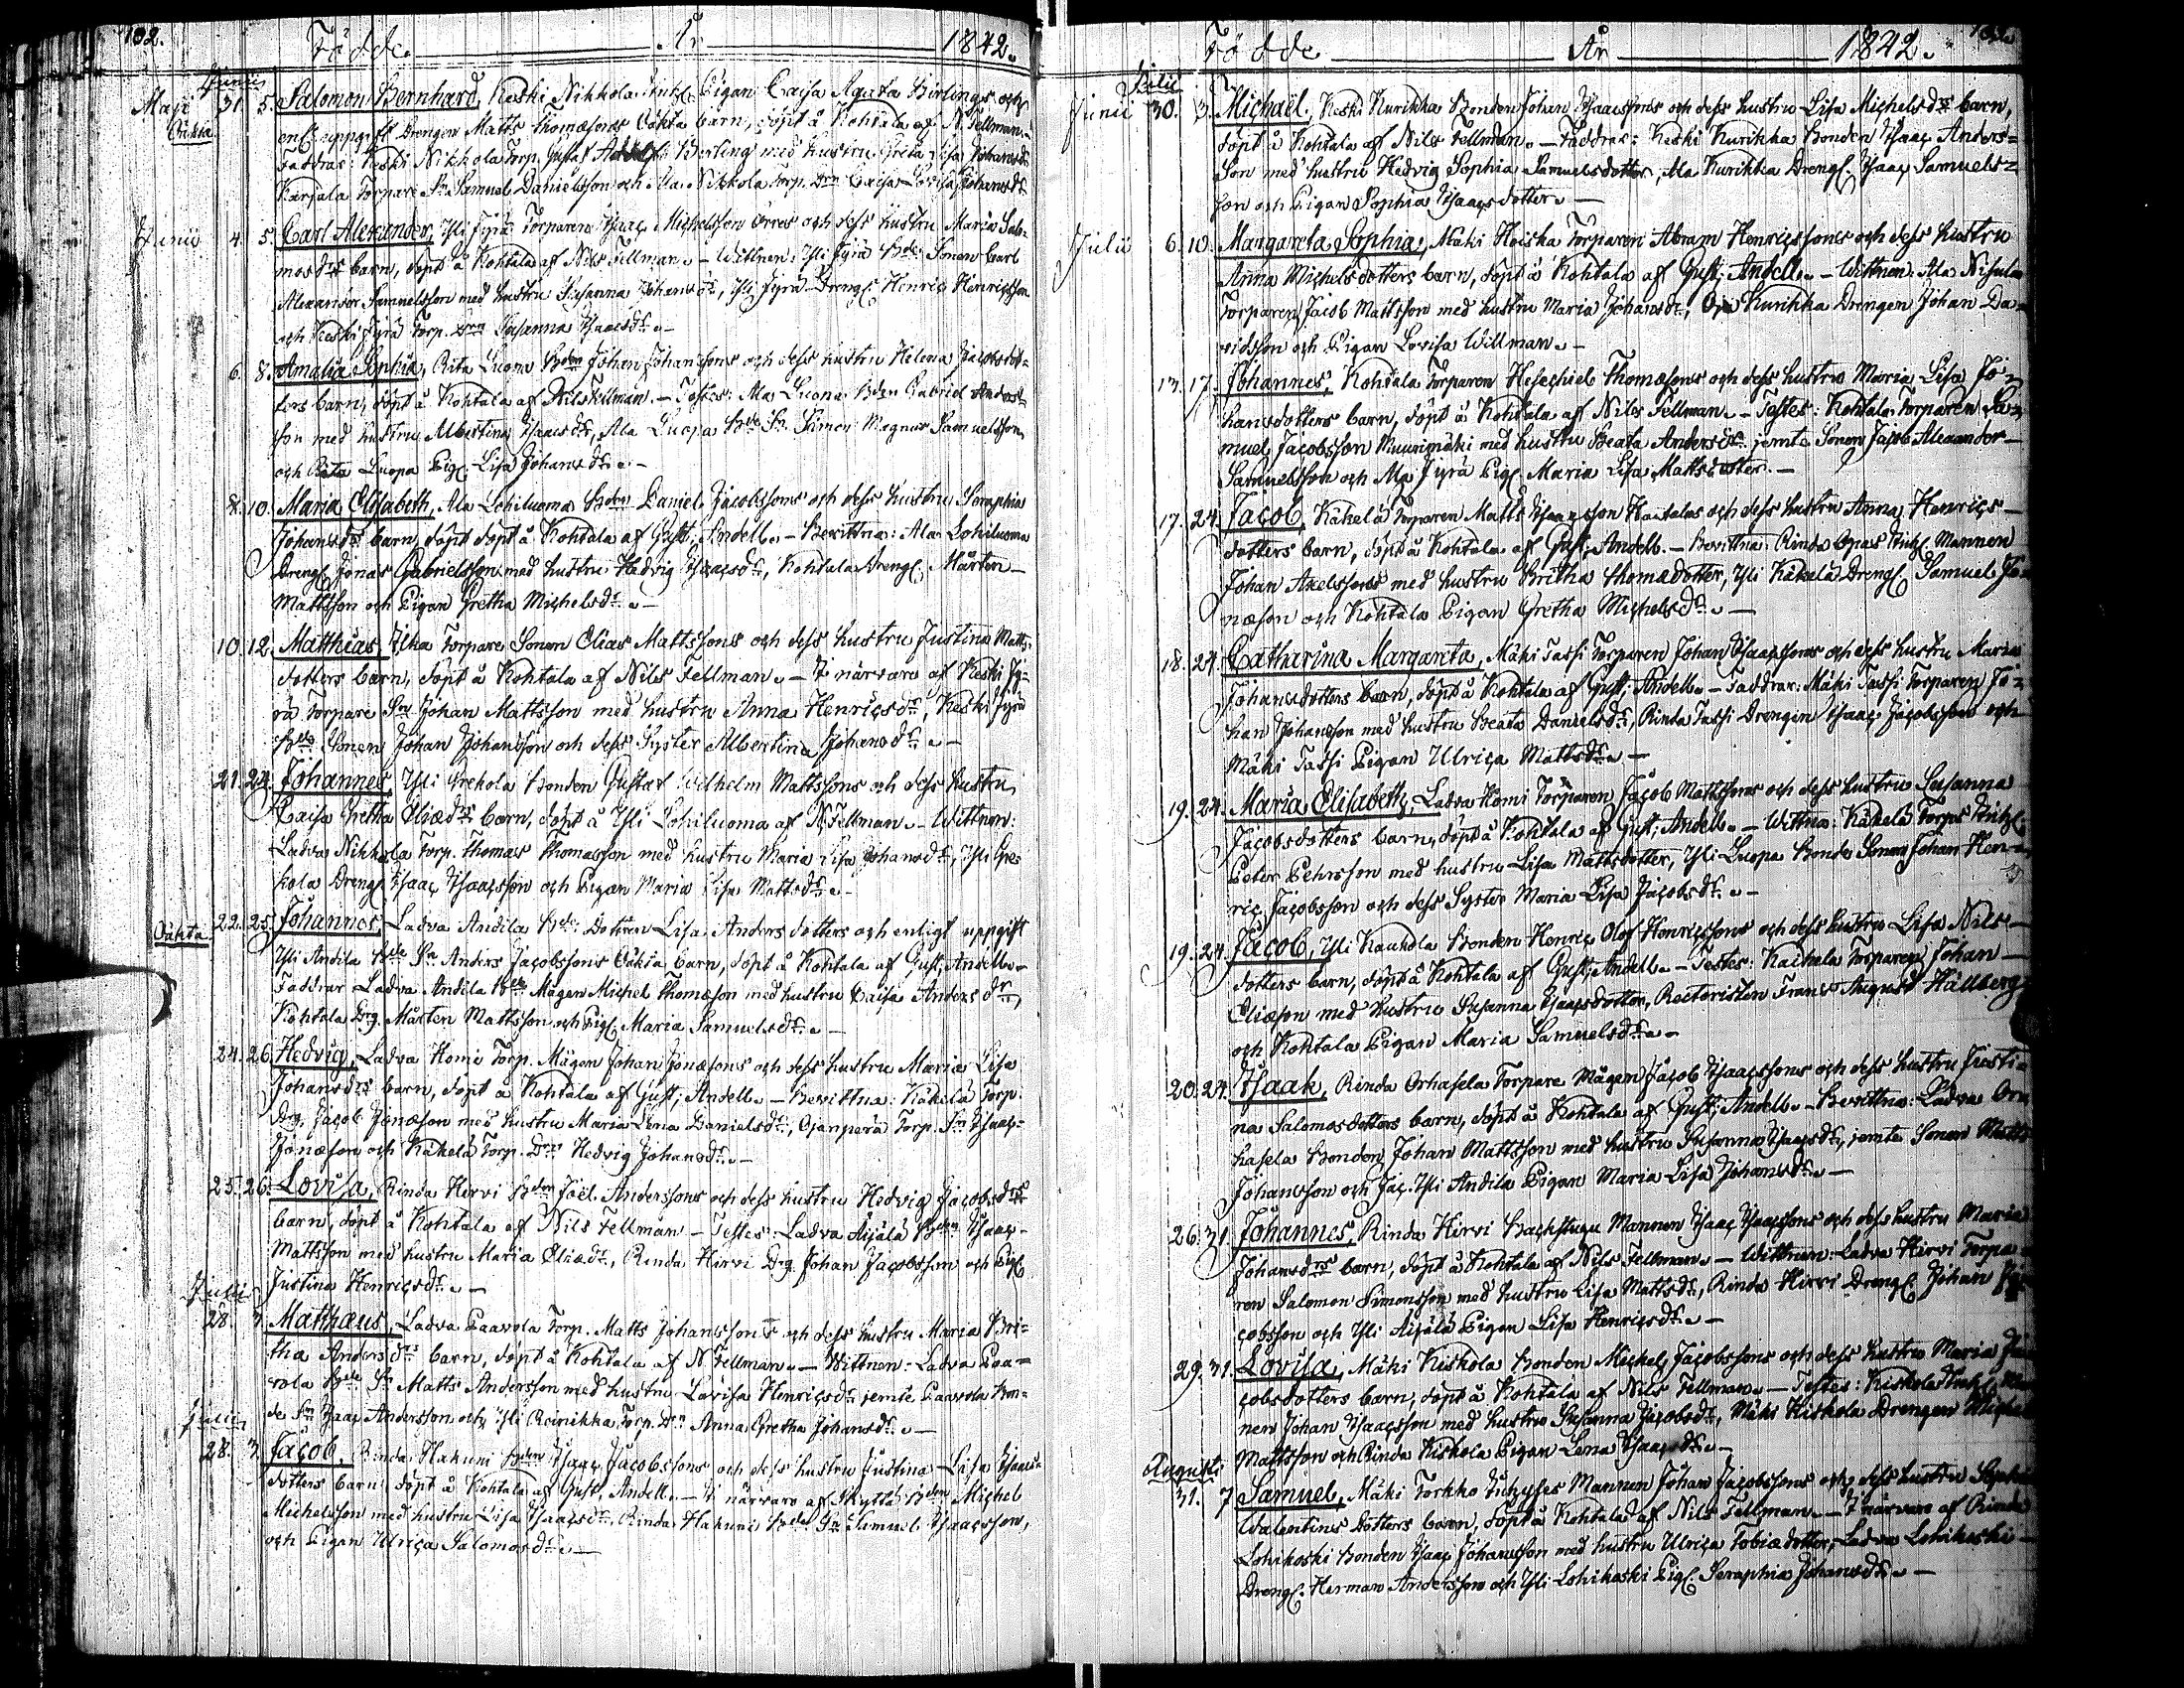 132.
Födde År 1842.
Junii
Maji 31. 5. Salomon Bernhard, Keski Nikkola Inh. Pigan Caisa Agata Birlings och
Oäkta enl. uppgift Drengen Matts Thomæsons Oäkta barn, döpt å Kohtala af N. Fellman.
Faddrar: Keski Nikkola Torp. Gustaf Adolf Berling med hustru Greta Lisa Johansdr
Karjala Torpare Sn Samuel Danielsson och Ala Nikkola Torp. Drn Caisa Lovisa Johansdr
Junii 4. 5. Carl Alexander, Yli Jyrä Torparen Isaac Michelsson Orres och dess hustru Maria Salo-
mosdrs barn, döpt å Kohtala af Nils Fellman. – Wittnen: Yli Jyrä Bde Sonen Carl
Alexander Samuelsson med hustru Susanna Johansdr, Yli Jyrä Drengl. Henric Henricsson
och Keski Jyrä Torp. Drn Susanna Isaacsdr. –
6. 8. Amalia Sophia, Rita Luoma Bden Johan Johanssons och dess hustru Helena Jacobsdot-
ters barn, döpt å Kohtala af Nils Fellman. – Testes: Ala Luoma Bden Gabriel Anders-
son med hustru Albertina Isaacsdr, Ala Luopa Bde Sn Simon Magnus Samuelsson
och Rita Luopa Pig. Lisa Johansdr. –
8. 10. Maria Elisabeth, Ala Lohiluoma Bden Daniel Jacobssons och dess hustru Seraphia
Johansdrs barn, döpt döpt å Kohtala af Gust. Andell. – Bevittna: Ala Lohiluoma
Drengl. Jonas Gabrielsson med hustru Hedvig Isaacsdr, Kohtala Drengl. Mårten
Mattsson och Pigan Gretha Michelsdr. –
10. 12. Matthias, Ilka Torpare Sonen Elias Mattssons och dess hustru Justina Matts-
dotters barn, döpt å Kohtala af Nils Fellman. – I närvaro af Keski Jy-
rä Torpare Sn Johan Mattsson med hustru Anna Henricsdr, Keski Jyrä
Bde Sonen Johan Johansson och dess Syster Albertina Johansdr. –
21. 24. Johannes, Yli Grekola Bonden Gustaf Wilhelm Mattssons och dess hustru
Caisa Gretha Eliædrs barn, döpt å Yli Lohiluoma af N. Fellman. – Wittnen:
Ladva Nikkola Torp. Thomas Thomasson med hustru Maria Lisa Johansdr, Yli Gre-
kola Drengl. Isaac Isaacsson och Pigan Maria Lisa Mattsdr. –
Oäkta. 22. 25. Johannes, Ladva Andila Bde Dottren Lisa Anders dotters och enligt uppgift
Yli Andila Bde Sn Anders Jacobssons Oäkta barn, döpt å Kohtala af Gust. Andell. –
Faddrar Ladva Andila Bde Mågen Michel Thomæson med hustru Caisa Anders dr,
Kohtala Drg. Mårten Mattsson och Pigl. Maria Samuelsdr. –
24. 26. Hedvig, Ladva Homi Torp. Mågen Johan Jonæsons och dess hustru Maria Lisa
Johansdrs barn, döpt å Kohtala af Gust. Andell. – Bevittna: Käkelä Torp.
Drg. Jacob Jonæson med hustru Maria Lena Danielsdr, Ojanperä Torp. Sn Isaac
Jonæson och Käkelä Torp. Drn Hedvig Johansdr. –
25. 26. Lovisa, Rinda Hirvi Bden Joël Anderssons och dess hustru Hedvig Jacobsdrs
barn, döpt å Kohtala af Nils Fellman – Testes: Ladva Äijälä Bden Isaac
Mattsson med hustru Maria Eliædr, Rinda Hirvi Drg. Johan Jacobsson och Pigl.
Justina Henricsdr. –
Julii
28. 3. Matthæus, Ladva Paavola Torp. Matts Johanssons och dess hustru Maria Bri-
tha Andersdrs barn, döpt å Kohtala af N Fellman. – Wittnen: Ladva Paa-
vola Bde Sn Matts Andersson med hustru Lovisa Henricsdr jemte Paavola Bon-
de Sn Isaac Andersson och Yli Reinikka Torp. Drn Anna Gretha Johansdr. –
Julii
28. 3. Jacob, Rinda Hakuni Bden Isaac Jacobssons och dess hustru Justina Lisa Isaacs-
dotters barn döpt å Kohtala af Gust. Andell. – I närvaro af Skyttä Bden Michel
Michelsson med hustru Lisa Isaacsdr, Rinda Hakuni Bde Sn Samuel Isaacsson,
och Pigan Ulrica Salomosdr. –
Födde År 1842.
Julii
Junii 30. 3. Michaël, Keski Kurikka Bonden Johan Isaacssons och dess hustru Lisa Michelsdrs barn,
döpt å Kohtala af Nils Fellman. – Faddrar: Keski Kurikka Bonden Isaac Anders-
son med hustru Hedvig Sophia Samuelsdotter, Ala Kurikka Drengl. Isaac Samuels-
son och Pigan Sophia Isaacsdotter. –
Julii 6. 10. Margareta Sophia, Mäki Hoiska Torparen Abram Henricssons och dess hustru
Anna Michelsdotters barn, döpt å Kohtala af Gust. Andell. – Wittnen: Ala Nisula
Torparen Jacob Mattsson med hustru Maria Johansdr, Kurikka Drengen Johan Da-
vidsson och Pigan Lovisa Willman. –
13. 17. Johannes, Kohtala Torparen Hesechiel Thomæsons och dess hustru Maria Lisa Jo-
hansdotters barn, döpt å Kohtala af Nils Fellman. – Testes: Kohtala Torparen Sa-
muel Jacobsson Muurimäki med hustru Beata Andersdr jemte Sonen Jacob Alexander
Samuelsson och Ala Jyrä Pigl. Maria Lisa Mattsdotter. –
17. 24. Jacob, Käkelä Torparen Matts Isaacsson Hautalas och dess hustru Anna Henrics-
dotters barn, döpt å Kohtala af Gust. Andell. – Bevittna: Rinda Opas Inhl. Mannen
Johan Axelsson med hustru Britha Thomædotter, Yli Käkelä Drengl. Samuel Jo-
næson och Kohtala Pigan Gretha Michelsdr. –
18. 24. Catharina Margareta, Mäki Tassi Torparen Johan Isaacssons och dess hustru Maria
Johansdotters barn, döpt å Kohtala af Gust. Andell. – Faddrar: Mäki Tassi Torparen Jo-
han Johansson med hustru Beata Danielsdr, Rinta Tassi Drengen Isaac Jacobsson och
Mäki Tassi Pigan Ulrica Mattsdr. –
19. 24. Maria Elisabeth, Ladva Homi Torparen Jacob Mattssons och dess hustru Susanna
Jacobsdotters barn, döpt å Kohtala af Gust. Andell. – Wittna: Käkelä Torps Inhl.
Peter Pehrsson med hustru Lisa Mattsdotter, Yli Luopa Bonde Sonen Johan Hen-
ric Jacobsson och dess Syster Maria Lisa Jacobsdr. –
19. 24. Jacob, Yli Kauhola Bonden Henric Olof Henricssons och dess hustru Lisa Nils-
dotters barn, döpt å Kohtala af Gust. Andell. – Testes: Torparen Johan
Eliæson med hustru Susanna Isaacsdotter, Rectoristen Frans August Hällberg
och Kohtala Pigan Maria Samuelsdr. –
20. 24. Isaak, Rinda Orhasela Torpare Mågen Jacob Isaacssons och dess hustru Justi-
na Salomosdotters barn, döpt å Kohtala af Gust. Andell. – Bevittna: Ladva Or-
hasela Bonden Johan Mattsson med hustru Susanna Isaacsdr, jemte Sonen Matts
Johansson och Yli Andila Pigan Maria Lisa Johansdr. –
26. 31. Johannes, Rinda Hirvi Backstugu Mannen Isaac Isaacssons och dess hustru Maria
Johansdrs barn, döpt å Kohtala af Nils Fellman. – Wittnen: Ladva Hirvi Torpa-
ren Salomon Simonsson med hustru Lisa Mattsdr, Rinda Hirvi Drengl. Johan Ja-
cobsson och Yli Äijälä Pigan Lisa Henricsdr. –
29. 31. Lovisa, Mäki Kiskola Bonden Michel Jacobssons och dess hustru Maria Ja-
cobsdotters barn, döpt å Kohtala af Nils Fellman. – Testes: Kiskola Inhl. Man-
nen Johan Isaacsson med hustru Susanna Jacobsdr, Mäki Kiskola Drengen Michel
Mattsson och Rinda Kiskola Pigan Lena Isaacsdr. –
Augusti
31. 7. Samuel, Mäki Torkko Inhyses Mannen Johan Jacobssons och dess hustru Sophia
Walentins dotters barn, döpt å Kohtala af Nils Fellman. – I närvaro af Rinda
Lohikoski Bonden Isaac Johansson med hustru Ulrica Tobiædotter, Ladva Lohikoski
Drengl. Herman Andersson och Yli Lohikoski Pigl. Seraphia Johansdr. –